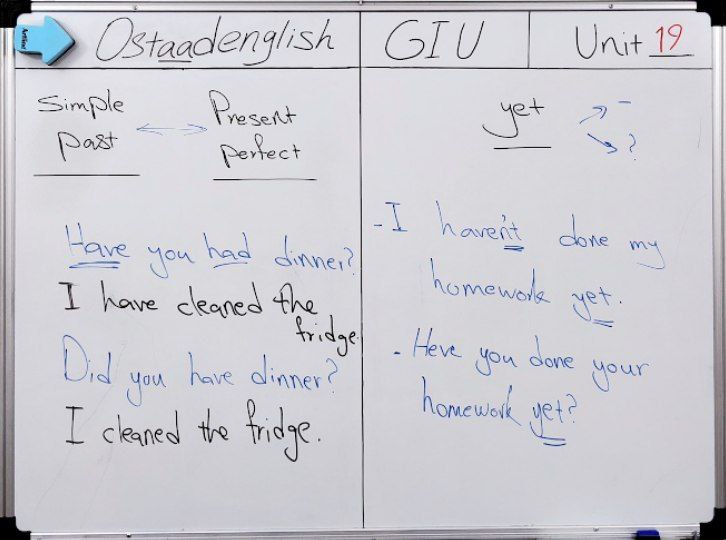 Ostaadenglish
GIU
Unit 19
Simple
past
Present
perfect
Have you had dinner?
I have cleaned the
fridge
Did you have dinner?
I cleaned the fridge.
yet
-
?
- I haven't done my
homework yet.
- Heve you done your
homework yet?